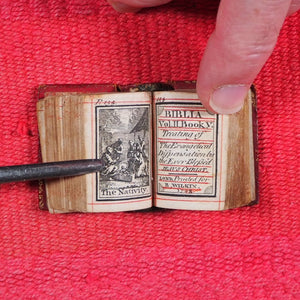 The Nativity.
BIBLIA
Vol. II Book V.
Treating of
The Evangelical
Dispensation by
the Ever Blessed
JESUS CHRIST.
Printed for
R. WILKIN,